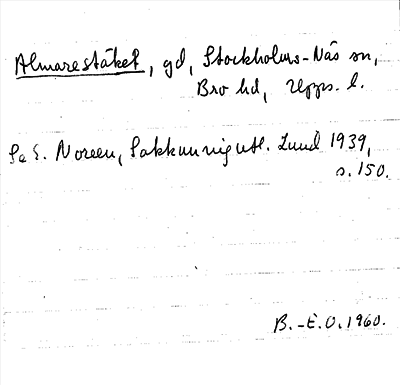 Almarestäket, gd, Stockholms-Näs sn,
Bro hd, Upps. l.
Se E. Noreen, Sakkunnigutl. Lund 1939,
s. 150.
B.-E.O. 1960.